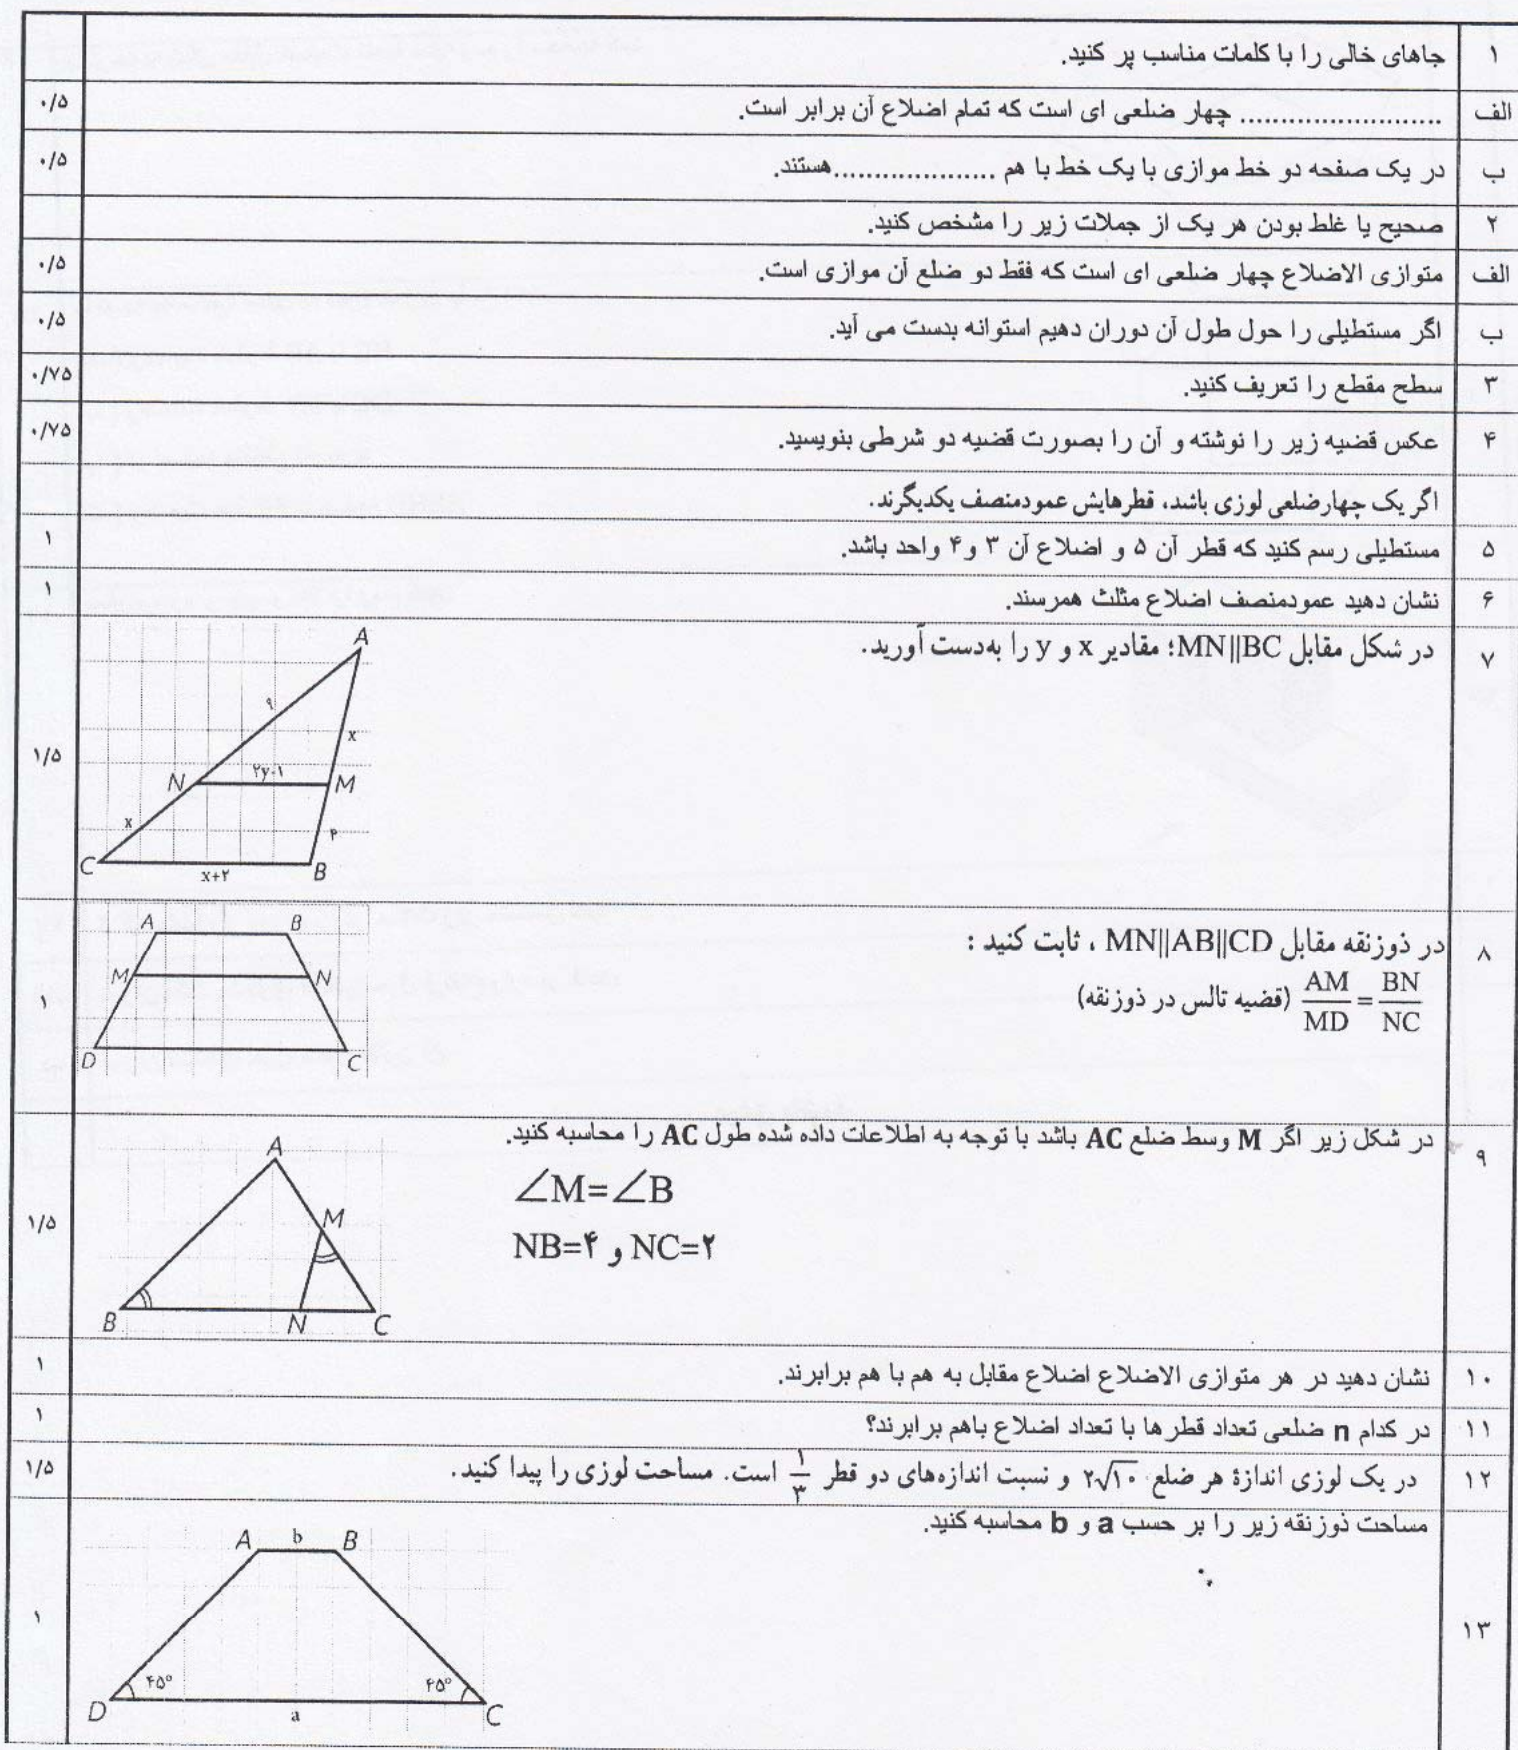 ۱ جاهای خالی را با کلمات مناسب پر کنید.
الف ......................... چهار ضلعی ای است که تمام اضلاع آن برابر است. ۰/۵
ب در یک صفحه دو خط موازی با یک خط با هم ....................هستند. ۰/۵
۲ صحیح یا غلط بودن هر یک از جملات زیر را مشخص کنید.
الف متوازی الاضلاع چهار ضلعی ای است که فقط دو ضلع آن موازی است. ۰/۵
ب اگر مستطیلی را حول طول آن دوران دهیم استوانه بدست می آید. ۰/۵
۳ سطح مقطع را تعریف کنید. ۰/۷۵
۴ عکس قضیه زیر را نوشته و آن را بصورت قضیه دو شرطی بنویسید. ۰/۷۵
اگر یک چهارضلعی لوزی باشد، قطرهایش عمودمنصف یکدیگرند.
۵ مستطیلی رسم کنید که قطر آن ۵ و اضلاع آن ۳ و۴ واحد باشد. ۱
۶ نشان دهید عمودمنصف اضلاع مثلث همرسند. ۱
۷ در شکل مقابل MN||BC؛ مقادیر x و y را به‌دست آورید. ۱/۵
A
۹
x
N
۲y-۱
M
x
۴
C
x+۲
B
۸ در ذوزنقه مقابل MN||AB||CD ، ثابت کنید :
AM/MD = BN/NC (قضیه تالس در ذوزنقه) ۱
A B
M N
D C
۹ در شکل زیر اگر M وسط ضلع AC باشد با توجه به اطلاعات داده شده طول AC را محاسبه کنید. ۱/۵
∠M=∠B
NB=۴ و NC=۲
A
M
B N C
۱۰ نشان دهید در هر متوازی الاضلاع اضلاع مقابل به هم با هم برابرند. ۱
۱۱ در کدام n ضلعی تعداد قطرها با تعداد اضلاع باهم برابرند؟ ۱
۱۲ در یک لوزی اندازهٔ هر ضلع ۲√۱۰ و نسبت اندازه‌های دو قطر ۱/۳ است. مساحت لوزی را پیدا کنید. ۱/۵
۱۳ مساحت ذوزنقه زیر را بر حسب a و b محاسبه کنید. ۱
A b B
۴۵° ۴۵°
D a C